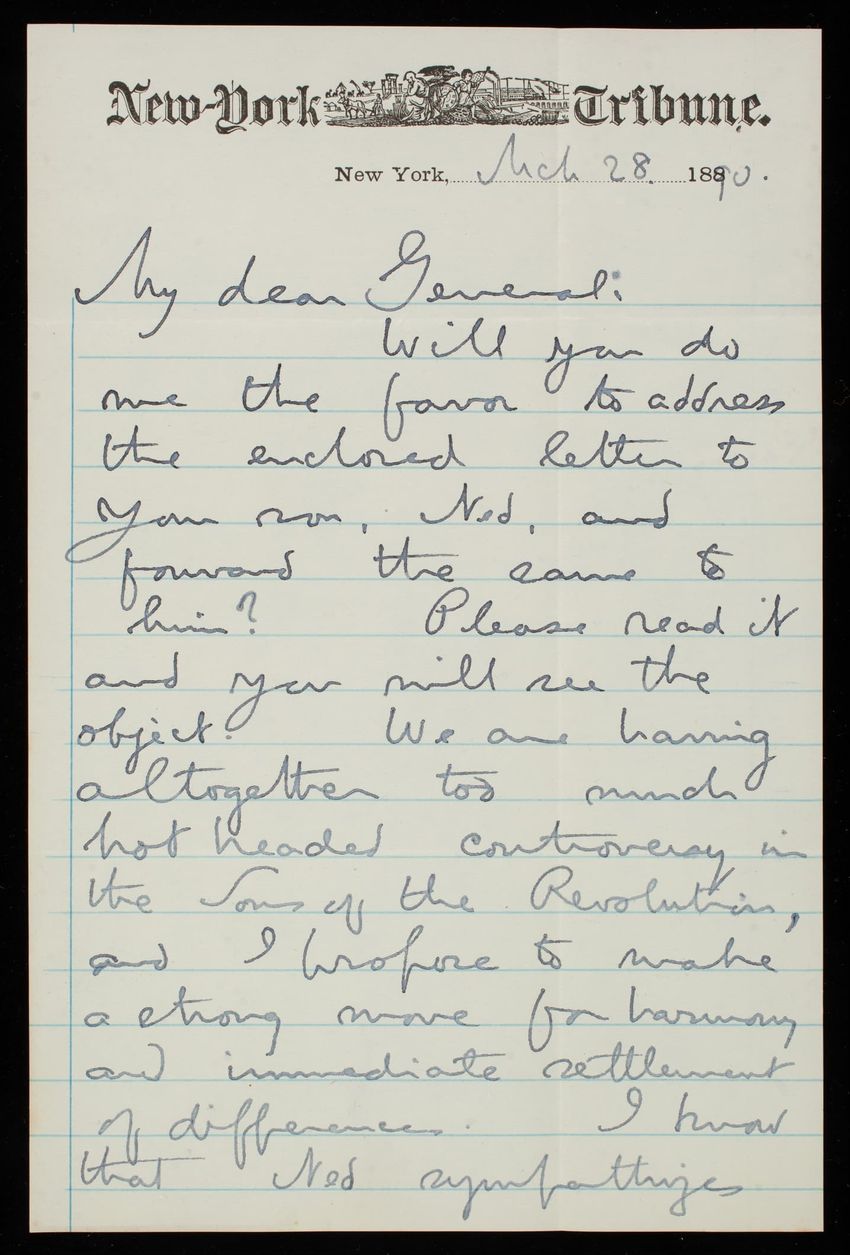 New-York Tribune.
New York, Mch 28. 1890.
My dear General:
Will you do
me the favor to address
the enclosed letter to
your son, Ned, and
forward the same to
him? Please read it
and you will see the
object. We are having
altogether too much
hot headed controversy in
the Sons of the Revolution,
and I propose to make
a strong move for harmony
and immediate settlement
of differences. I know
that Ned sympathizes